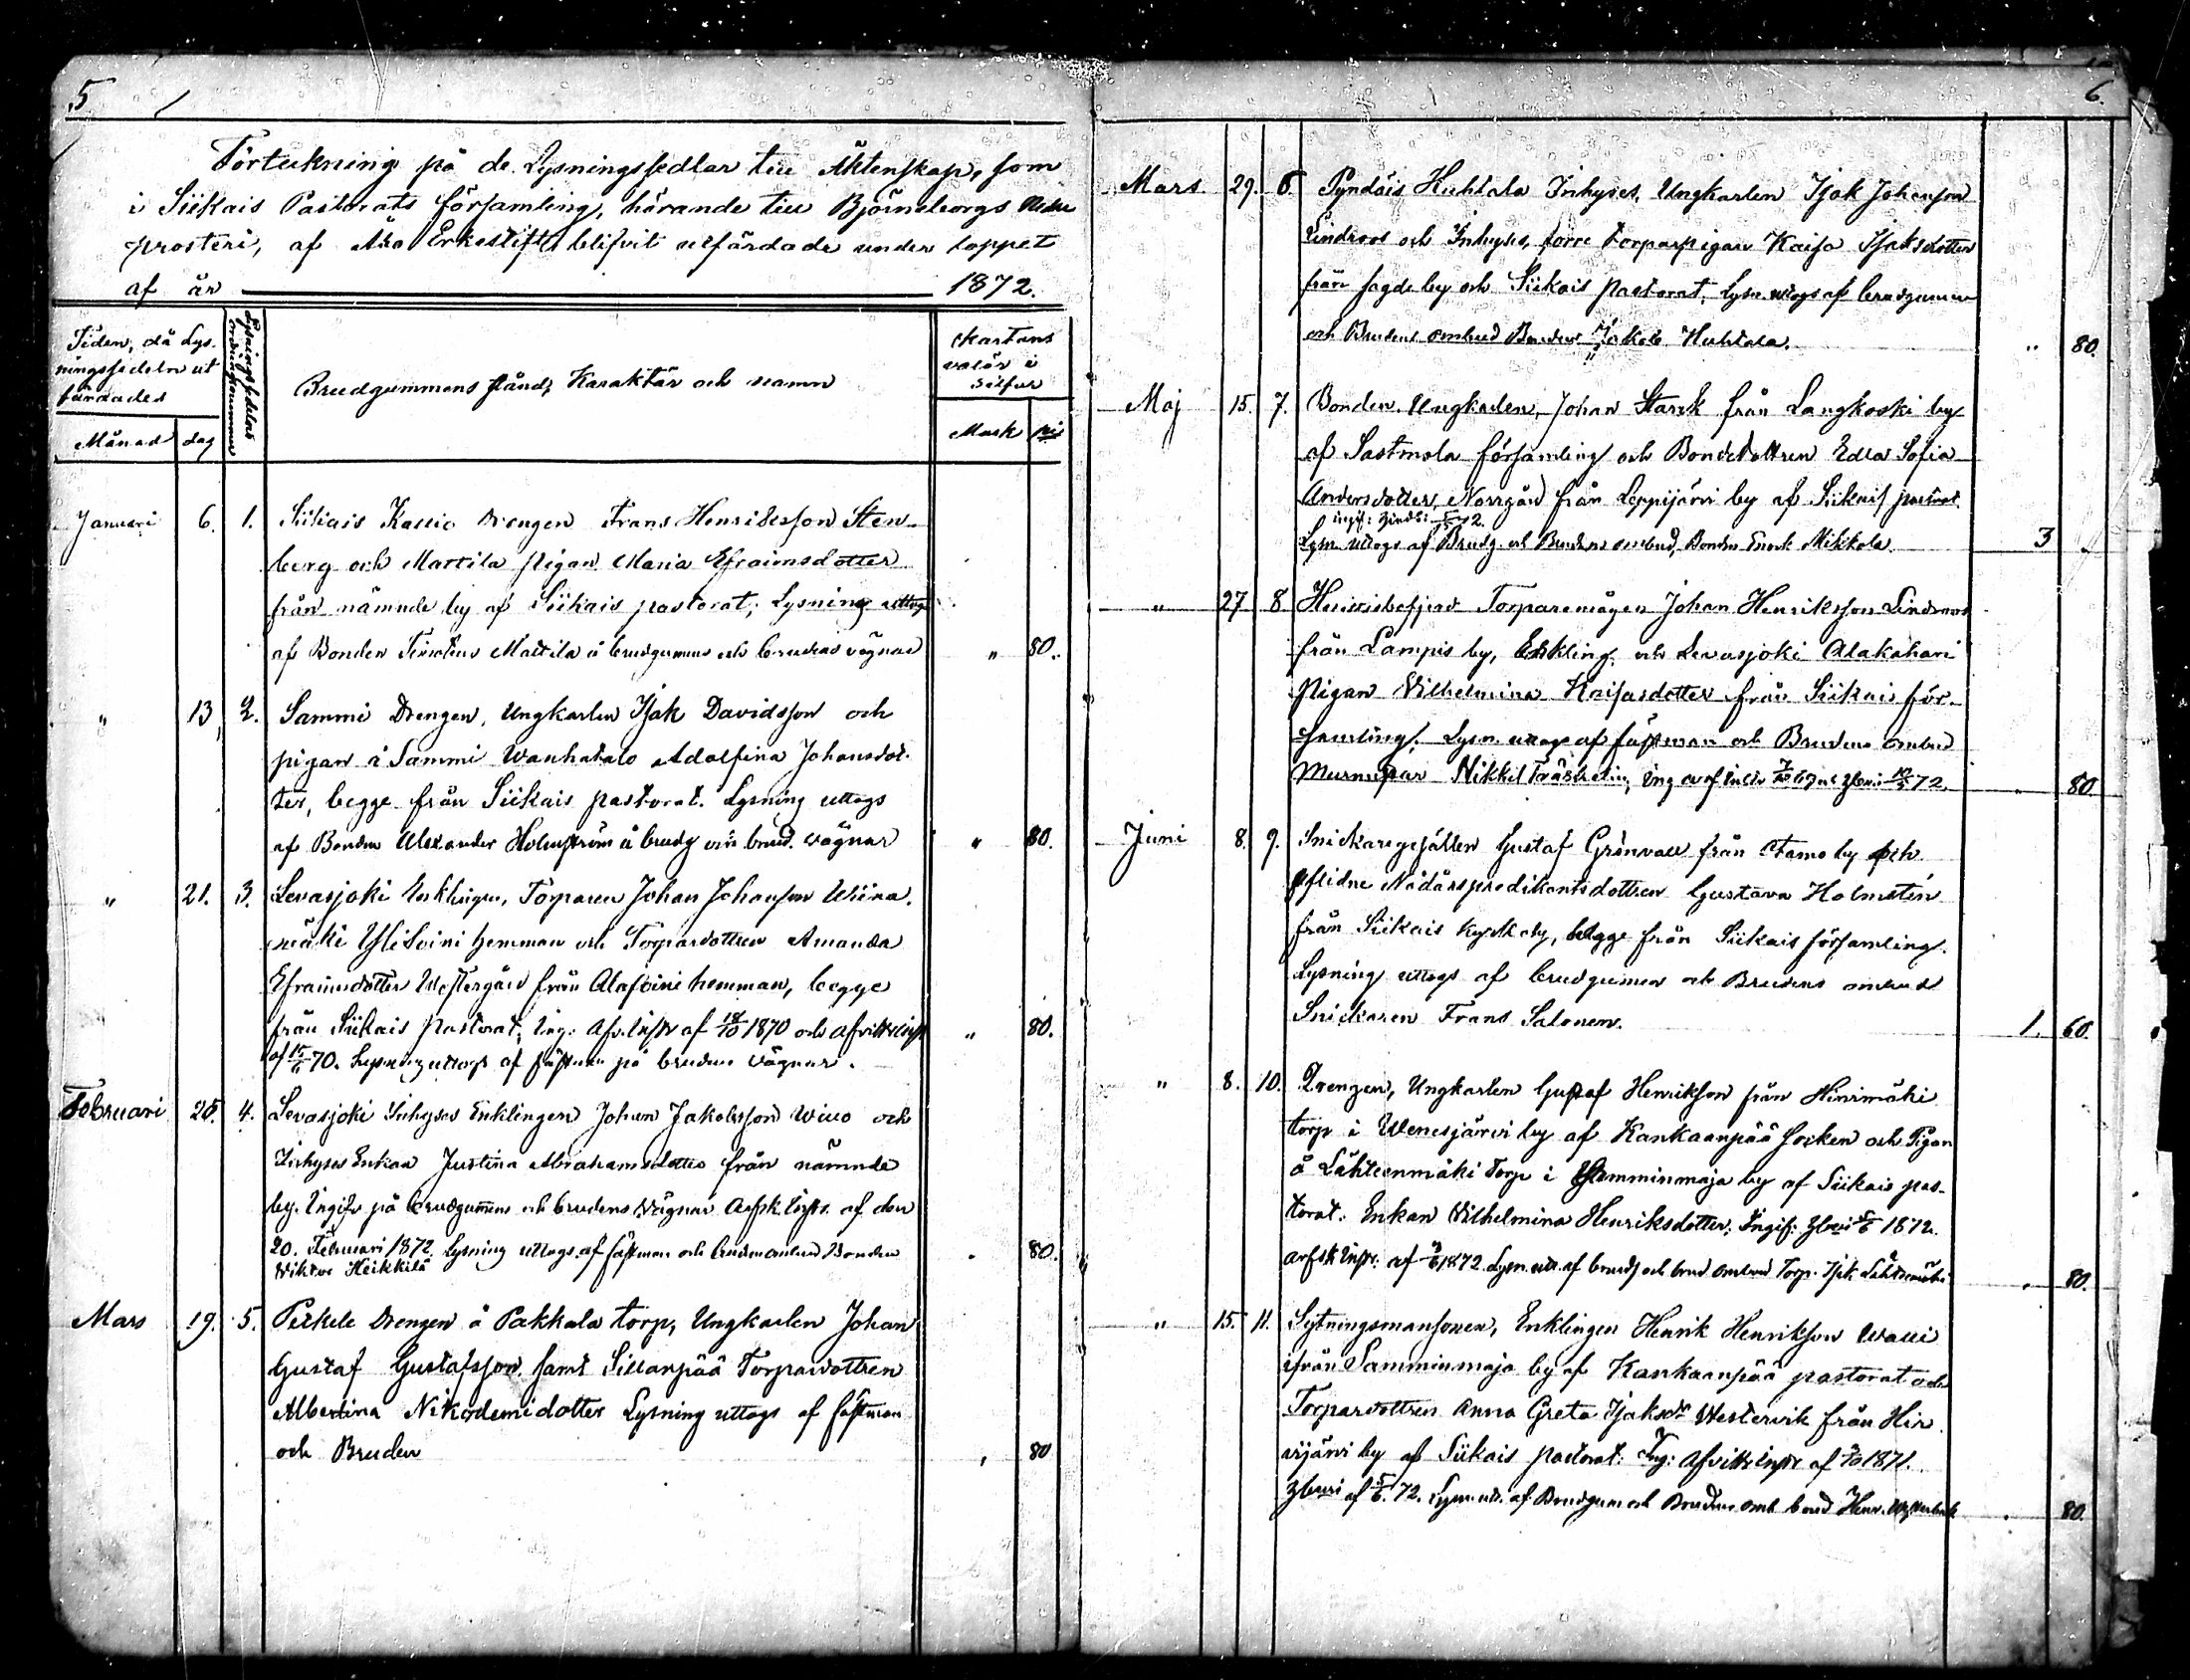 5
Förteckning på de Lysningssedlar till Äktenskap, som
i Siikais Pastorats församling, hörande till Björneborgs Nedre
prosteri, af Åbo Erkestift blifvit utfärdade under loppet
af år 1872.
Tiden, då Lys-
ningssedeln ut
färdades
Lysningssedelns
ordningsnummer
Brudgummens stånd, Karaktär och namn
Chartans
valör i
Silfver
Månad dag
Mark pi
Januari 6. 1. Siikais Kallio Drengen Frans Henriksson Sten-
berg och Mattila pigan Maria Efraimsdotter
från nämnde by af Siikais pastorat; Lysning uttogs
af Bonden Mattila å brudgummens och brudens vägnar " 80.
" 13. 2. Sammi Drengen, Ungkarlen Isak Davidsson och
pigan å Sammi Wanhatalo Adolfina Johansdot-
ter, begge från Siikais pastorat. Lysning uttogs
af Bonden Alexander Holmström å brudg och brud. vägnar " 80.
" 21. 3. Levasjoki Enklingen, Torparen Johan Johansson Wiina-
mäki Ylisoini hemman och Torpardottren Amanda
Efraimsdotter Westergård från Alasoini hemman, begge
från Siikais Pastorat; Ing: Afv. Instr af 18/10 1870 och afvittr. inst
af 70. Lysning uttogs af fästman på brudens vägnar. " 80.
Februari 25. 4. Levasjoki Inhyses Enklingen Johan Jakobsson Wiio och
Inhyses Enkan Justina Abrahamsdotter från nämnde
by. Ingifv på brudgummens och brudens vägnar Arfsk. instr. af den
20. Februari 1872. Lysning uttogs af fästman och brudens ombud Bonden
Viktor Heikkilä " 80.
Mars 19. 5. Peikele Drengen å Pakkala torp, Ungkarlen Johan
Gustaf Gustafsson samt Sillanpää Torpardottren
Albertina Nikodemidotter Lysning uttogs af fästman
och Bruden " 80
6.
Mars 29. 6. Pyndäis Huhtala Inhyses, Ungkarlen Isak Johansson
Lindroos och Inhyses, förre torparpigan Kaisa Isaksdotter
från sagde by och Siikais Pastorat, Lysn. uttogs af brudgummen
och Brudens ombud Bonden Jakob Huhtala. " 80.
Maj 15. 7. Bonden Ungkarlen, Johan Starck från Langkoski by
af Sastmola församling och Bondedottren Edla Sofia
Andersdotter Norrgård från Leppijärvi by af Siikais pastorat.
Lysn. uttogs af Brudg. och Brudens ombud, Bonden Enock Mikkola. 3
" 27. 8. Torparemågen Johan Henriksson Lindroos
från Lampis by, Enkling. och Levasjoki Alakahari
Pigan Vilhelmina Kaisasdotter från Siikais för-
samling. Lysn. uttogs af fästman och Brudens ombud
Murmästar Mikkel 72. " 80.
Juni 8. 9. Snickaregesällen Gustaf Grönvall från Otamo by och
aflidne Nådårspredikantsdottren Gustava Holmstén
från Siikais Kyrkoby, begge från Siikais församling.
Lysning uttogs af brudgummen och Brudens ombud
Snickaren Frans Salonen. 1. 60.
" 8. 10. Drengen, Ungkarlen Gustaf Henriksson från Hinimäki
torp i Wenesjärvi by af Kankaanpää socken och Pigan
å Lähteenmäki Torp i Samminmaja by af Siikais pas-
torat. Enkan Vilhelmina Henriksdotter, Ingif: 1872.
arfsk. instr: af 1872. Lysn. utt. af brudg och brud ombud Torp. Isak Lähteenmäki " 80.
" 15. 11. Sytningsmansonen, Enklingen Henrik Henriksson Walli
ifrån Samminmaja by af Kankaanpää pastorat och
Torpardottren Anna Greta Isaksdr Westervik från Hir-
vijärvi by af Siikais Pastorat: Ing: afvittr. instr af 1871.
af 5/6 72. Lysn. utt. af Brudgum och Brudens omb bond Henr. " 80.